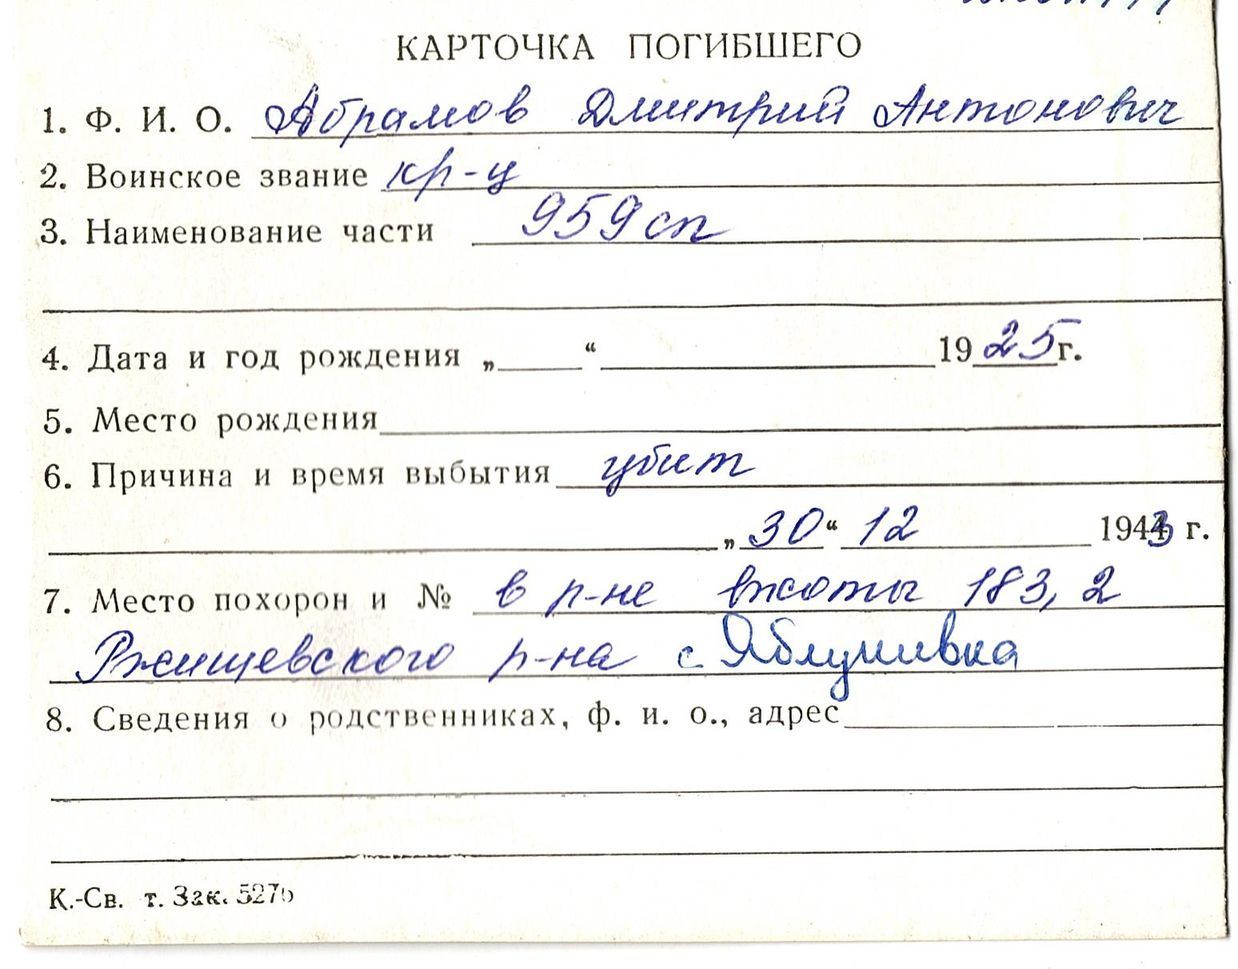 КАРТОЧКА ПОГИБШЕГО
1. Ф. И. О. Абрамов Дмитрий Антонович
2. Воинское звание кр-ц
3. Наименование части 959 сп
4. Дата и год рождения „ “ 1925 г.
5. Место рождения
6. Причина и время выбытия убит
„30“ 12 1943 г.
7. Место похорон и № в р-не высоты 183,2
Ржищевского р-на с. Яблунивка
8. Сведения о родственниках, ф. и. о., адрес
К.-Св. т. Зак. 5276